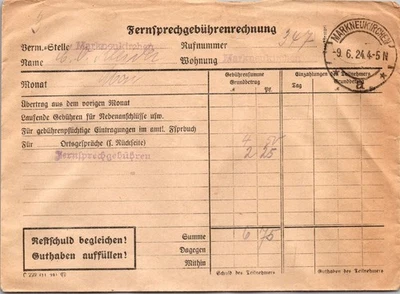 Fernsprechgebührenrechnung
Verm.-Stelle Markneukirchen Rufnummer 347
Name Wohnung
MARKNEUKIRCHEN
-9.6.24.4-5N
a
Monat
Gebührensumme Grundbetrag Einzahlungen des Teilnehmers Grundbetrag
M Pf. Tag
Übertrag aus dem vorigen Monat
Laufende Gebühren für Nebenanschlüsse usw.
Für gebührenpflichtige Eintragungen im amtl. Fsprbuch
Für Ortsgespräche (s. Rückseite) 2 25
Fernsprechgebühren
Summe 6 75
Dagegen
Mithin
Restschuld begleichen!
Guthaben auffüllen!
Schuld des Teilnehmers Guthaben des Teilnehmers